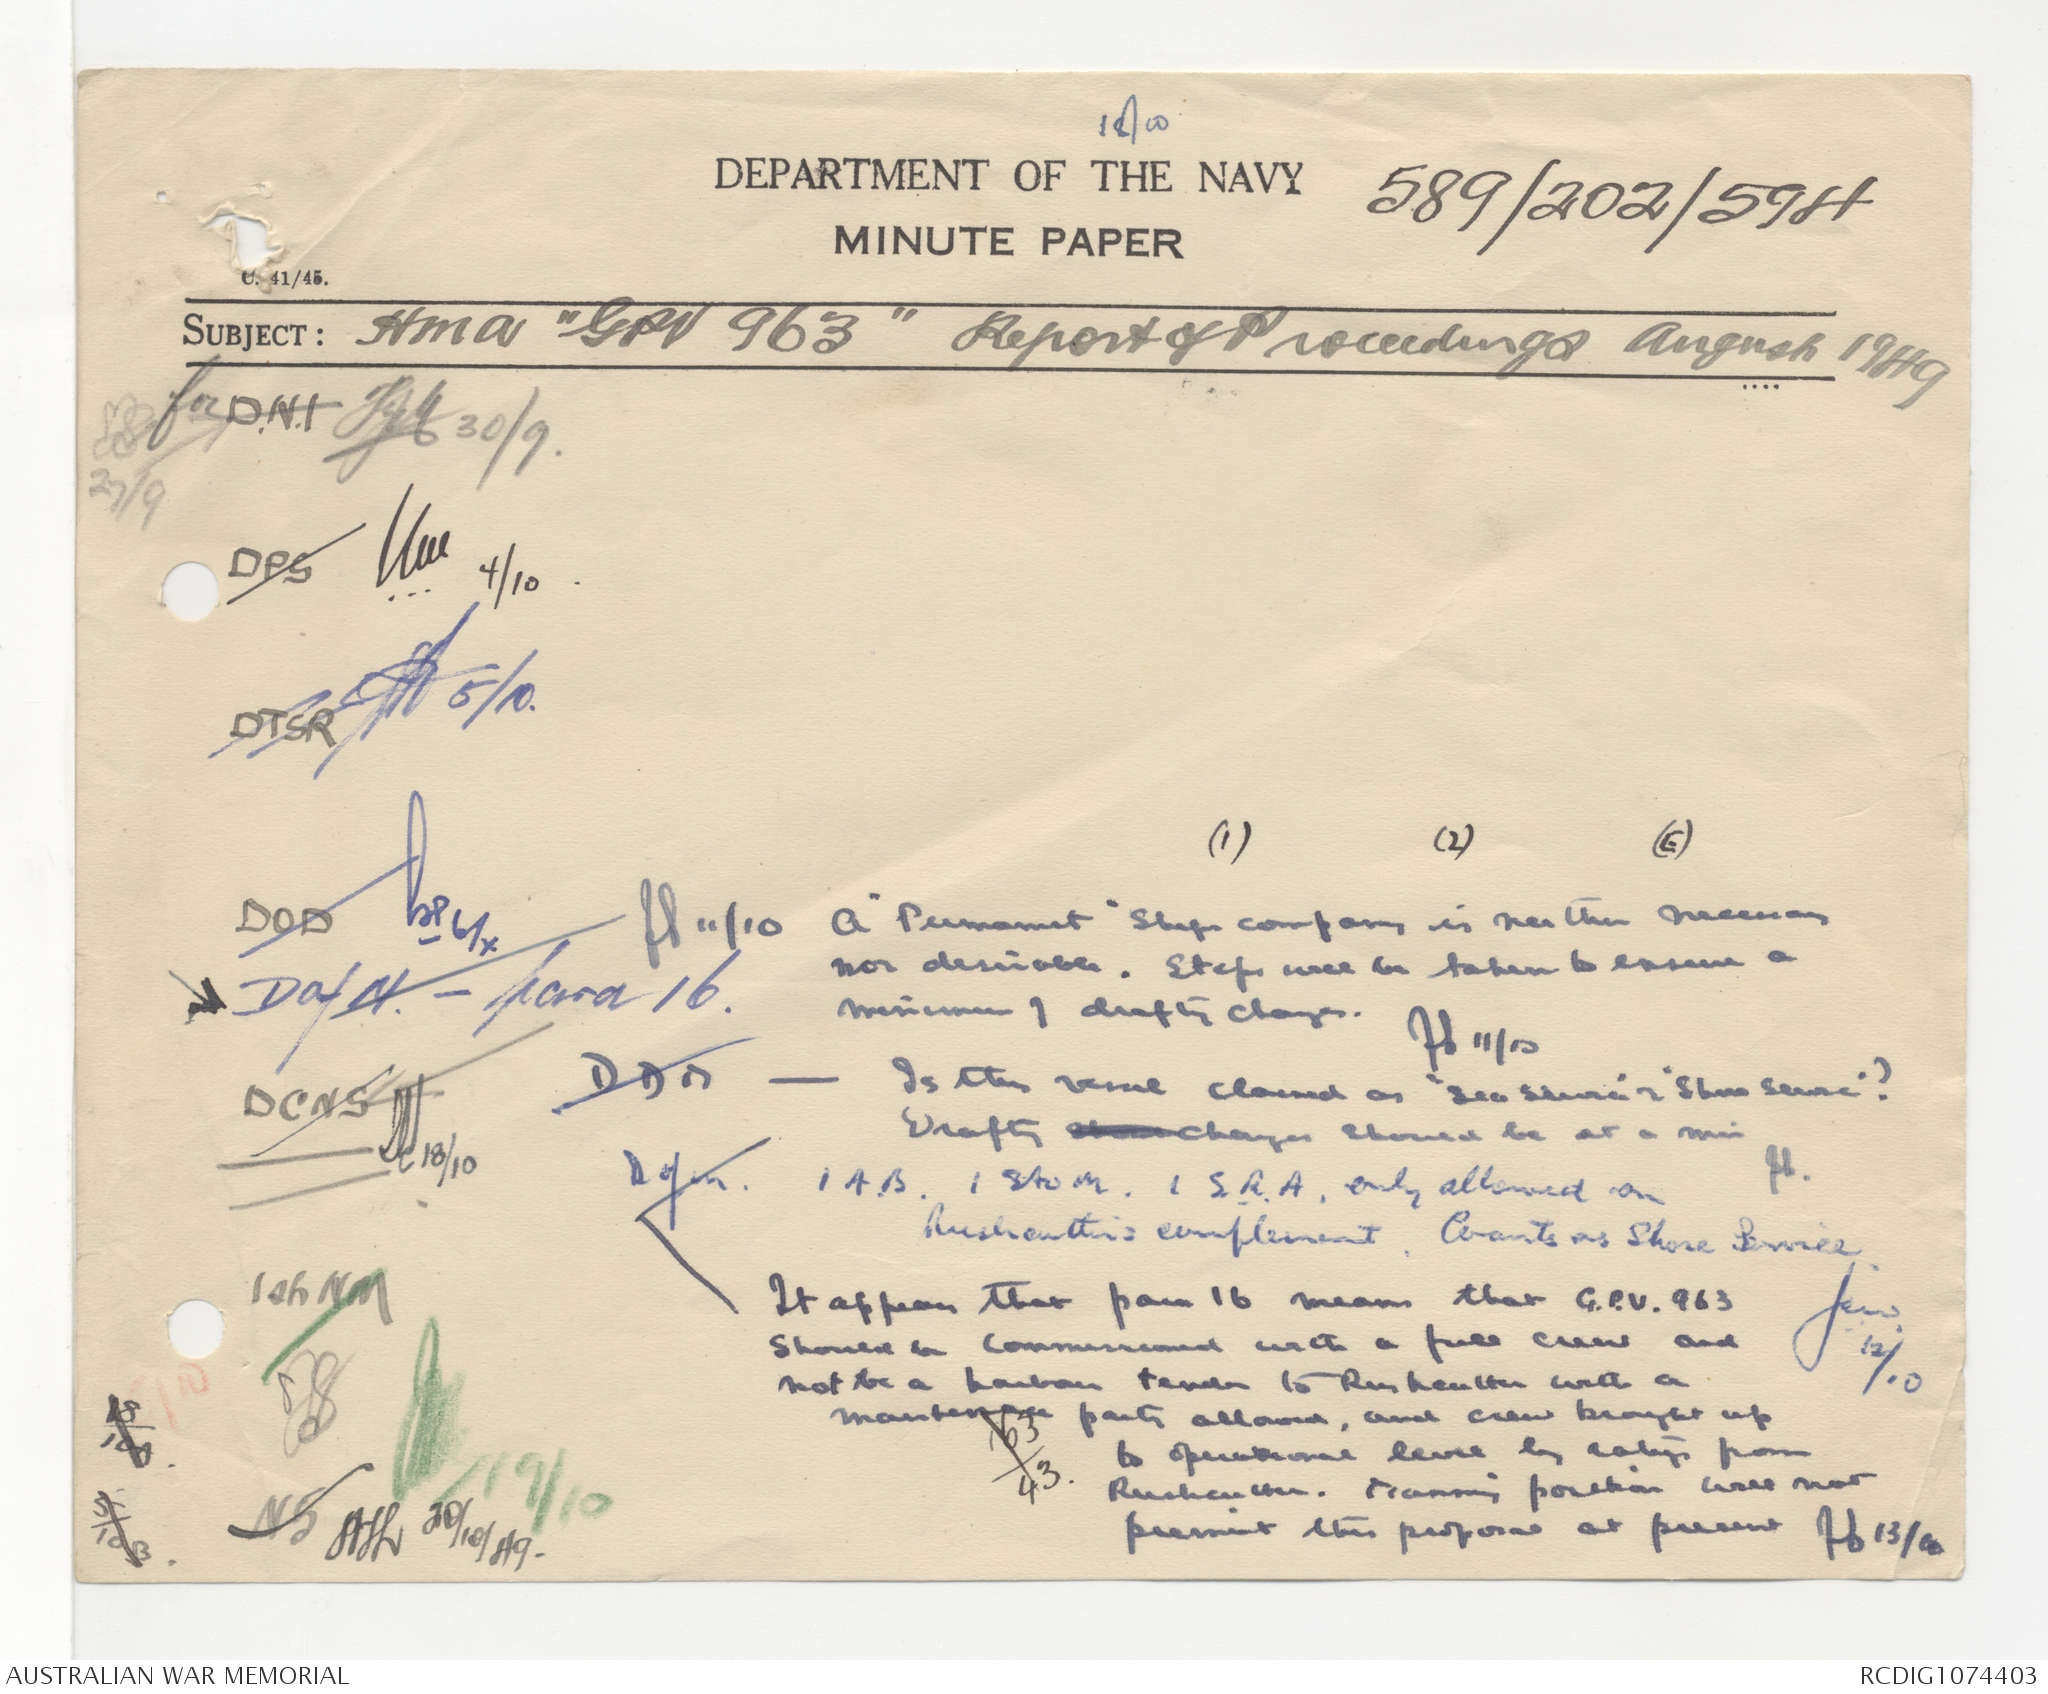 12/10
DEPARTMENT OF THE NAVY
589/202/594
MINUTE PAPER
C. 41/45.
SUBJECT: HMA "GPV 963" Report of Proceedings August 1949
for D.N.I 30/9.
27/9
DPS 4/10
DTSR 5/10.
(1) (2) (E)
DOD 6/x 11/10 A "Permanent" Ships company is neither necessary
nor desirable. Steps will be taken to ensure a
D of M. - para 16.
minimum of drafty changes.
11/10
DDM — Is this vessel classed as "Sea Service" or "Shore Service"?
DCNS 18/10
Drafty changes should be at a min
D of M. 1 A.B. 1 Sto M. 1 E.R.A. only allowed on
Rushcutter's complement. Counts as Shore Service.
1st NM
It appears that para 16 means that G.P.V. 963
should be commissioned with a full crew and
12/10
not be a harbour tender to Rushcutter with a
maintenance party allowed, and crew brought up
to operational level by ratings from
63
43.
Rushcutter. Manning position will not
permit this proposal at present 13/10
19/10
NS 20/10/49-